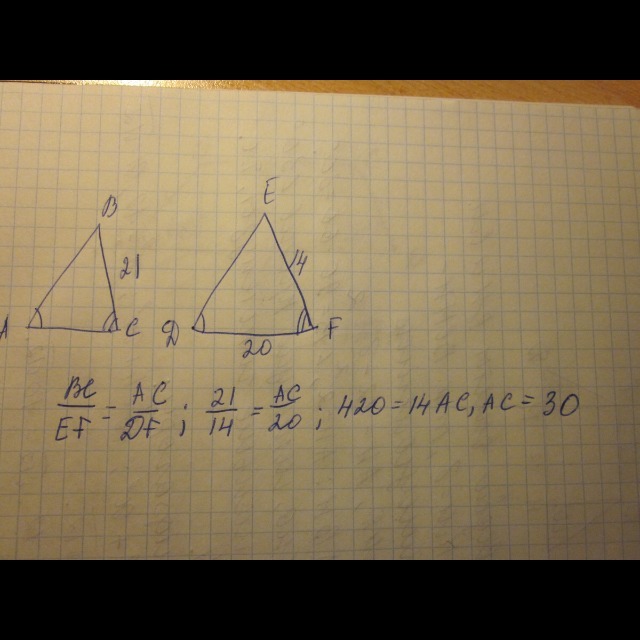 B
E
21
14
A
C
D
F
20
BC/EF = AC/DF ; 21/14 = AC/20 ; 420 = 14AC, AC = 30